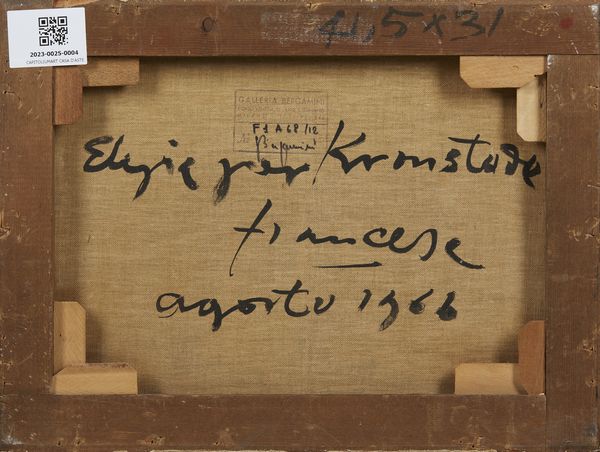 2023-0025-0004
CAPITOLIUMART CASA D'ASTE
41,5x31
GALLERIA BERGAMINI
F1 A68/12
No Bergamini
Elegia per Kronstadt
francese
agosto 1966